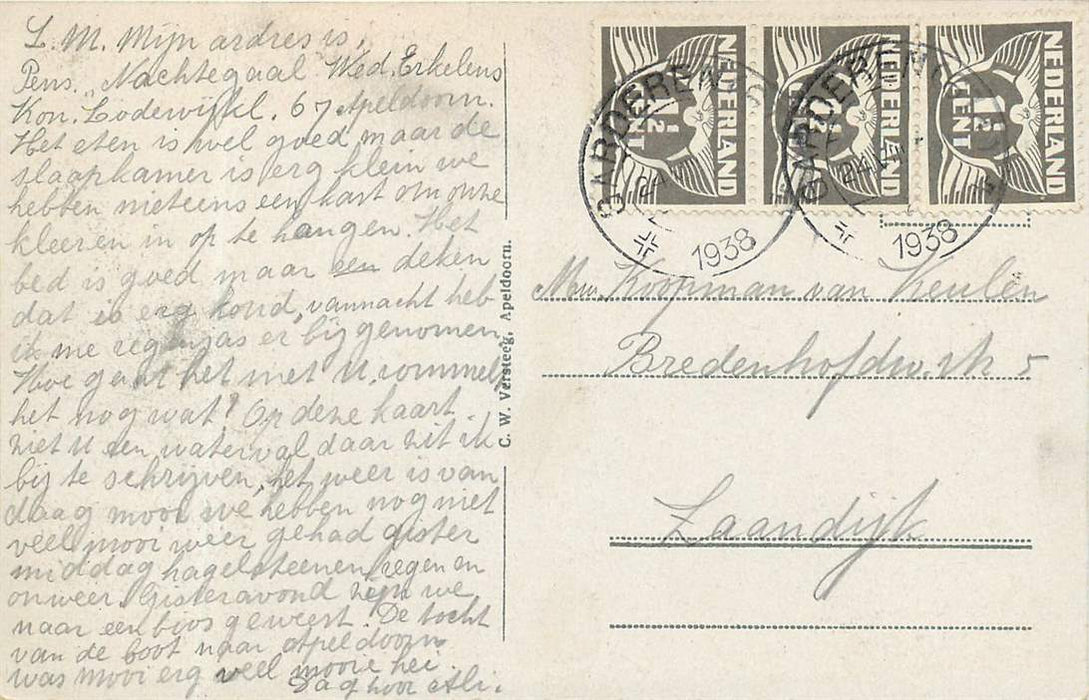 L. M. Mijn adres is,
Pens. „Nachtegaal Wed. Erkelens
Kon. Lodewijkl. 67 Apeldoorn.
Het eten is wel goed maar de
slaapkamer is erg klein we
hebben niet eens een kast om onze
kleeren in op te hangen. Het
bed is goed maar een deken
dat is erg koud, vannacht heb
ik me regenjas er bij genomen
Hoe gaat het met U. rommelt
het nog wat? Op deze kaart.
ziet U een waterval daar zit ik
bij te schrijven, het weer is van
daag mooi we hebben nog niet
veel mooi weer gehad gister
middag hagelsteenen regen en
onweer. Gisteravond zijn we
naar een bios geweest. De tocht
van de boot naar Apeldoorn
was mooi erg veel mooie hei.
Dag hoor Ali.
C. W. Versteeg, Apeldoorn.
NEDERLAND
1½
CENT
NEDERLAND
NEDERLAND
1½
CENT
GARDEREN
24
1938
GARDEREN
24
1938
Mew. Koopman van Keulen
Bredenhofdw.str 5
Zaandijk